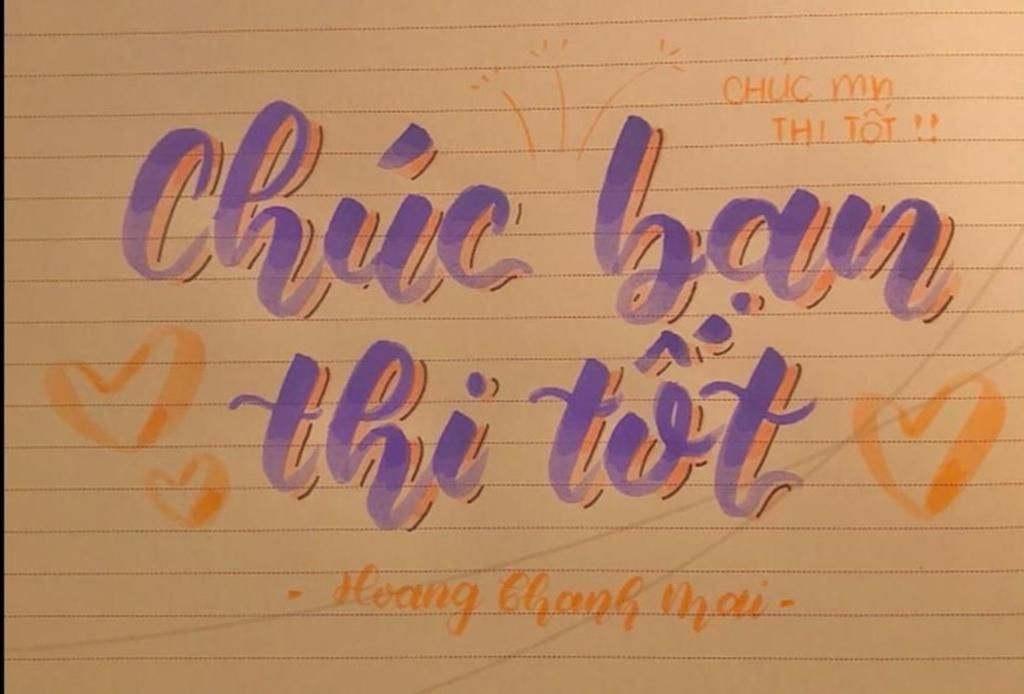 CHÚC mn
THI TỐT !!
Chúc bạn
thi tốt
- Hoang Chanh Mai -